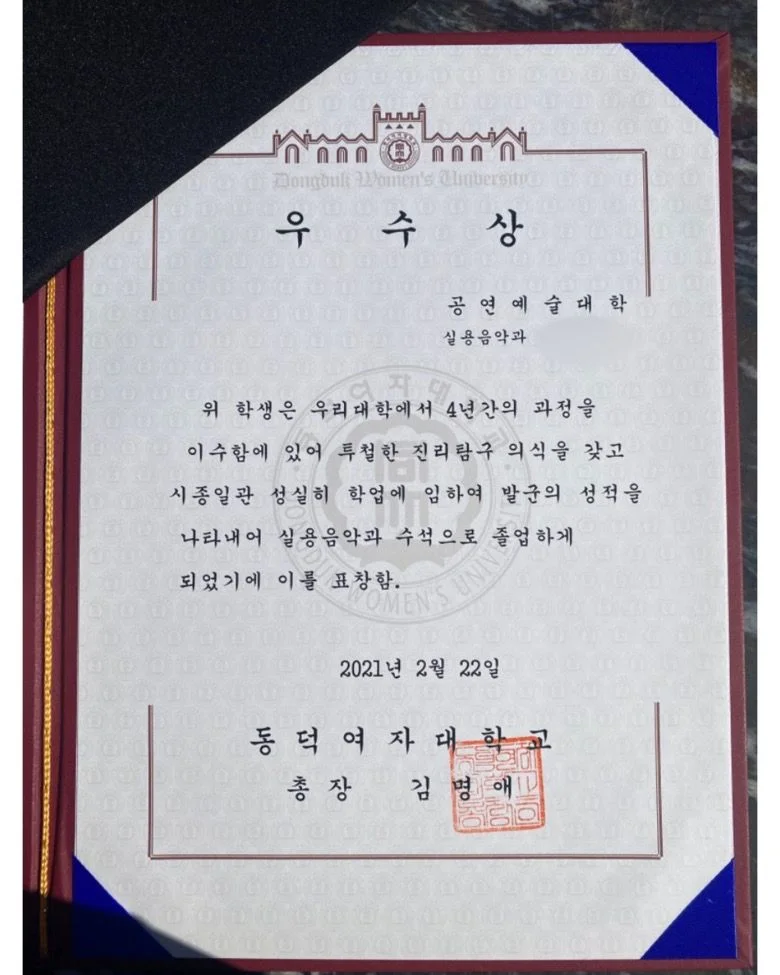 Dongduk Women's University
우 수 상
공연예술대학
실용음악과
위 학생은 우리대학에서 4년간의 과정을
이수함에 있어 투철한 진리탐구 의식을 갖고
시종일관 성실히 학업에 임하여 발군의 성적을
나타내어 실용음악과 수석으로 졸업하게
되었기에 이를 표창함.
2021년 2월 22일
동덕여자대학교
총장 김명애